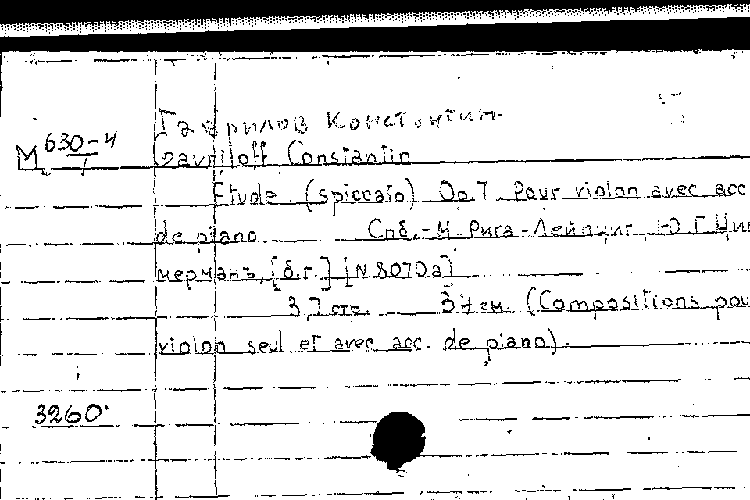 Гаврилов Константин
М 630-4/1
Gavriloff Constantin
Etude (spiccato) Op.7. Pour violon avec acc
de piano Спб.-М Рига-Лейпциг, Ю.Г.Цим
мерманъ, [б.г.] [N 8070a]
3,7 стр. 34 см. (Compositions pou
violon seul et avec acc. de piano).
3260